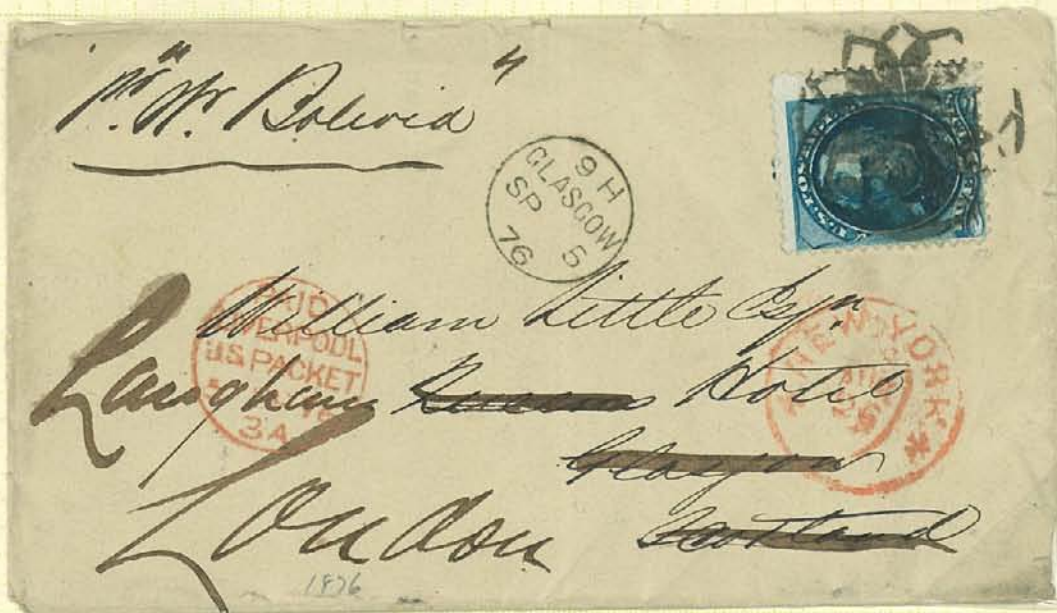 pr. "Str. Bolivia"
GLASGOW
9 H
SP 5
76
William Little Esqr.
PAID
LIVERPOOL
U.S. PACKET
3A
NEW YORK
Langham Hotel
Glasgow
London Scotland
1876